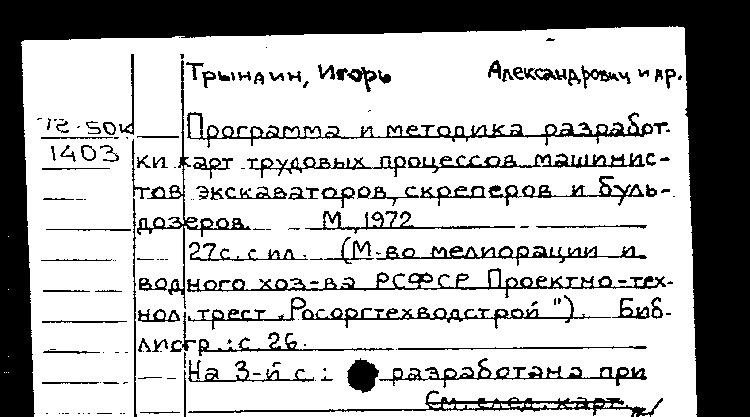 Трындин, Игорь Александрович и др.
72-50к Программа и методика разработ-
1403 ки карт трудовых процессов машинис-
тов экскаваторов, скреперов и буль-
дозеров. М., 1972
27с. с ил. (М-во мелиорации и
водного хоз-ва РСФСР Проектно-тех-
нол. трест "Росоргтехводстрой"). Биб-
лиогр.: с 26.
На 3-й с: разработана при
См. след. карт.